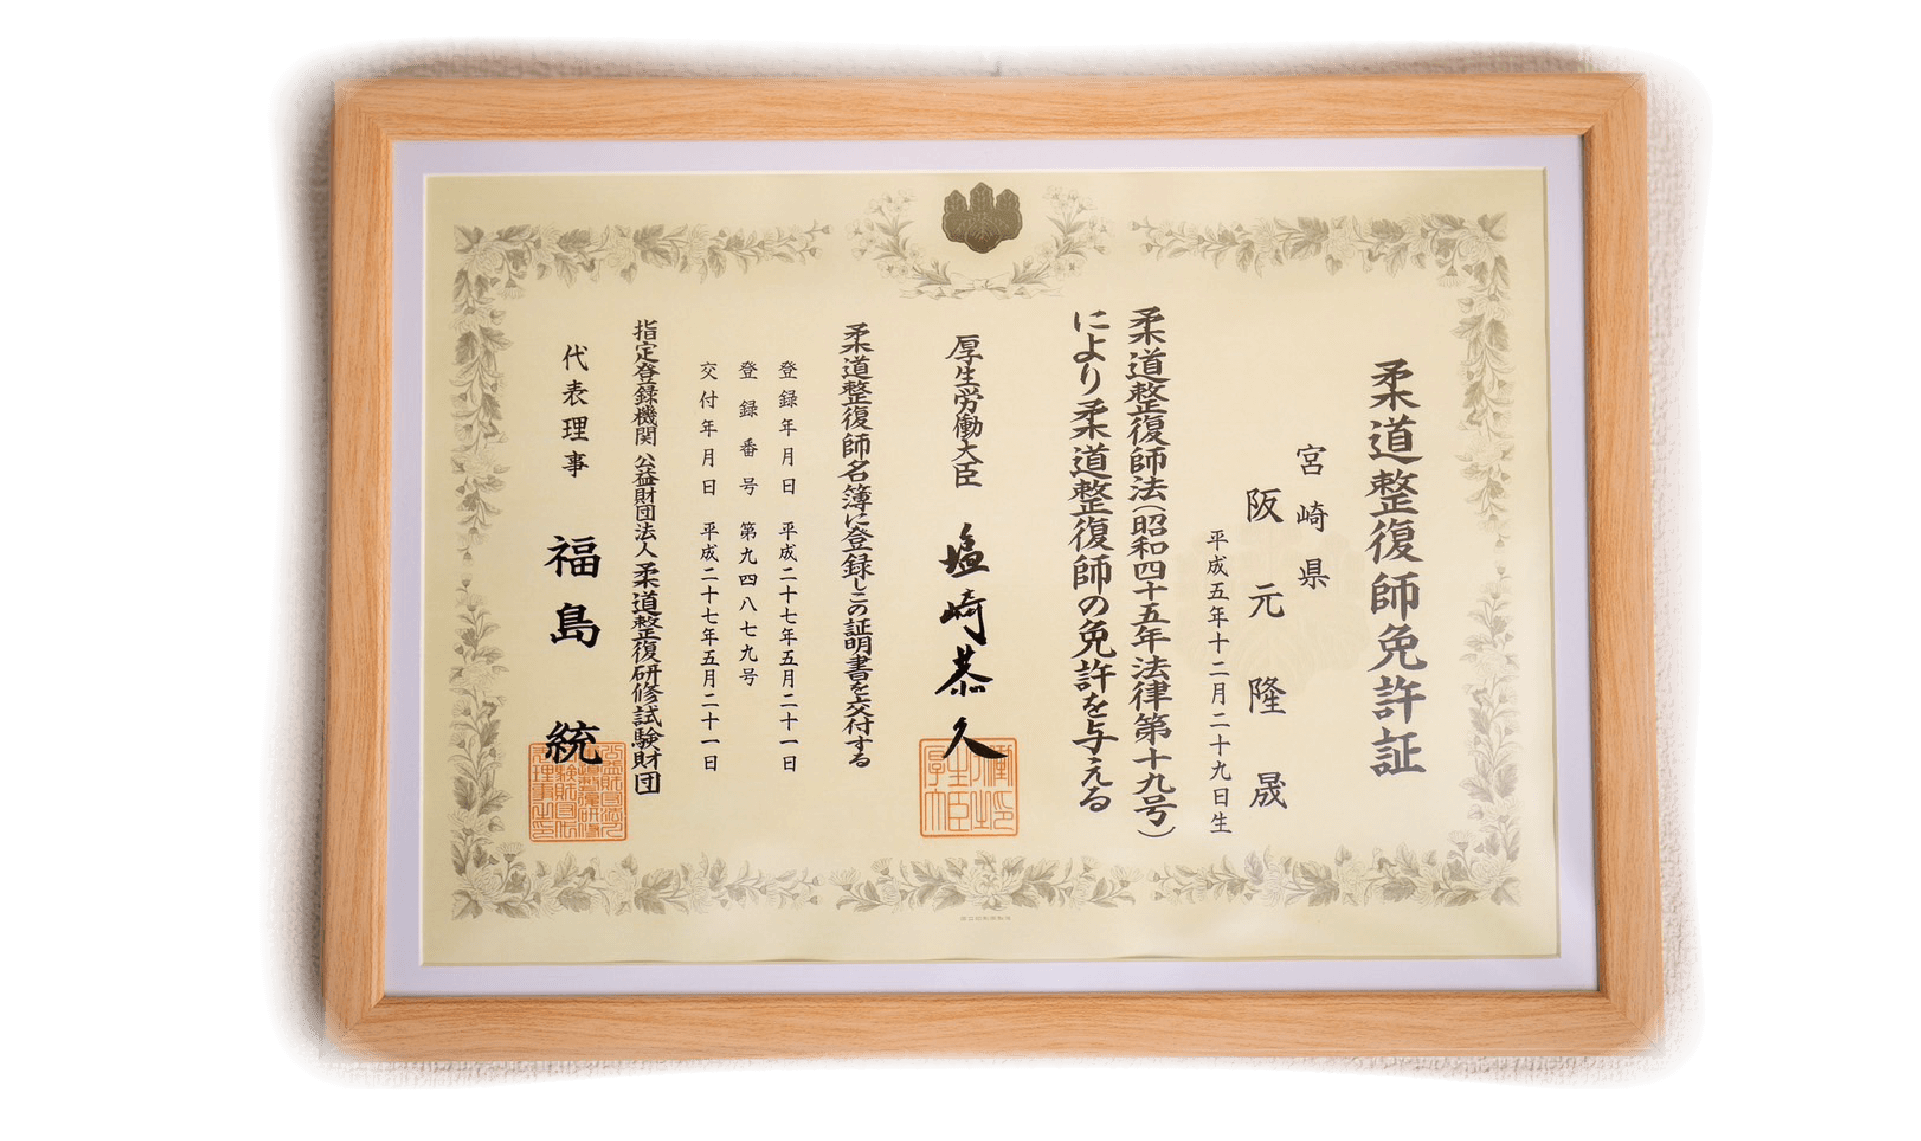 柔道整復師免許証
宮崎県
阪元隆晟
平成五年十二月二十九日生
柔道整復師法(昭和四十五年法律第十九号)
により柔道整復師の免許を与える
厚生労働大臣 塩崎恭久
柔道整復師名簿に登録しこの証明書を交付する
登録年月日 平成二十七年五月二十一日
登録番号 第九四八七九号
交付年月日 平成二十七年五月二十一日
指定登録機関 公益財団法人 柔道整復研修試験財団
代表理事 福島統